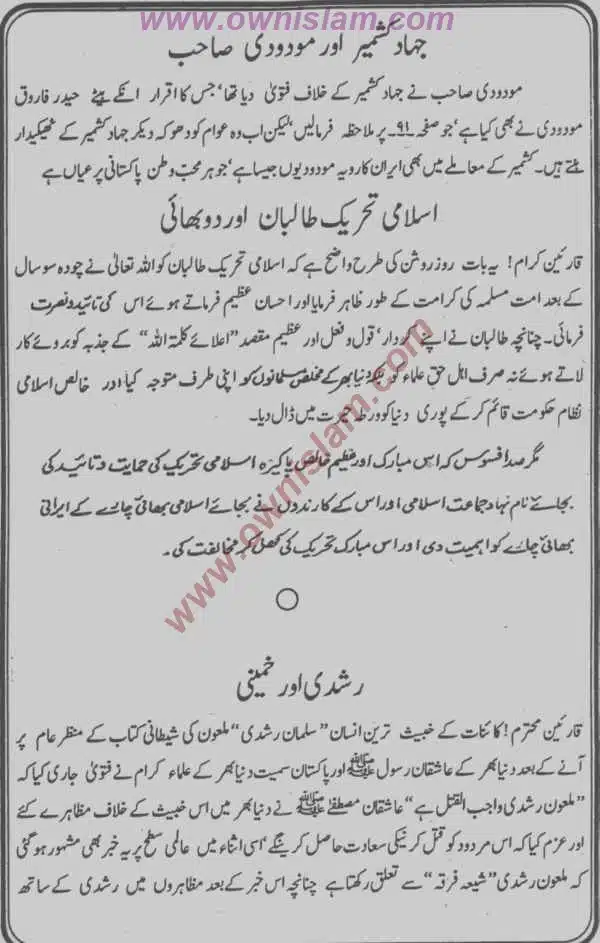 www.ownislam.com
جہاد کشمیر اور مودودی صاحب
مودودی صاحب نے جہاد کشمیر کے خلاف فتویٰ دیا تھا، جس کا اقرار انکے بیٹے حیدر فاروق
مودودی نے بھی کیا ہے، جو صفحہ ۹۱ پر ملاحظہ فرمالیں، لیکن اب وہ عوام کو دھوکہ دیکر جہاد کشمیر کے ٹھیکیدار
بنتے ہیں۔ کشمیر کے معاملے میں بھی ایران کا رویہ مودودیوں جیسا ہے، جو ہر محب وطن پاکستانی پر عیاں ہے
اسلامی تحریک طالبان اور دو بھائی
قارئین کرام! یہ بات روز روشن کی طرح واضح ہے کہ اسلامی تحریک طالبان کو اللہ تعالیٰ نے چودہ سو سال
کے بعد امت مسلمہ کی کرامت کے طور ظاہر فرمایا اور احسان عظیم فرماتے ہوئے اس کی تائید و نصرت
فرمائی۔ چنانچہ طالبان نے اپنے کردار، قول و فعل اور عظیم مقصد "اعلائے کلمۃ اللہ" کے جذبہ کو بروئے کار
لاتے ہوئے نہ صرف اہل حق علماء کو بلکہ دنیا بھر کے مخلص مسلمانوں کو اپنی طرف متوجہ کیا اور خالص اسلامی
نظام حکومت قائم کر کے پوری دنیا کو ورطہ حیرت میں ڈال دیا۔
مگر صد افسوس کہ اس مبارک اور عظیم خالص پاکیزہ اسلامی تحریک کی حمایت و تائید کی
بجائے نام نہاد جماعت اسلامی اور اس کے کارندوں نے بجائے اسلامی بھائی چارے کے ایرانی
بھائی چارے کو اہمیت دی اور اس مبارک تحریک کی کھل کر مخالفت کی۔
www.ownislam.com
رشدی اور خمینی
قارئین محترم! کائنات کے خبیث ترین انسان "سلمان رشدی" ملعون کی شیطانی کتاب کے منظر عام پر
آنے کے بعد دنیا بھر کے عاشقان رسول ﷺ اور پاکستان سمیت دنیا بھر کے علماء کرام نے فتویٰ جاری کیا کہ
"ملعون رشدی واجب القتل ہے" عاشقان مصطفےٰ ﷺ نے دنیا بھر میں اس خبیث کے خلاف مظاہرے کئے
اور عزم کیا کہ اس مردود کو قتل کرنیکی سعادت حاصل کرینگے، اسی اثناء میں عالمی سطح پر یہ خبر بھی مشہور ہو گئی
کہ ملعون رشدی "شیعہ فرقہ" سے تعلق رکھتا ہے چنانچہ اس خبر کے بعد مظاہروں میں رشدی کے ساتھ